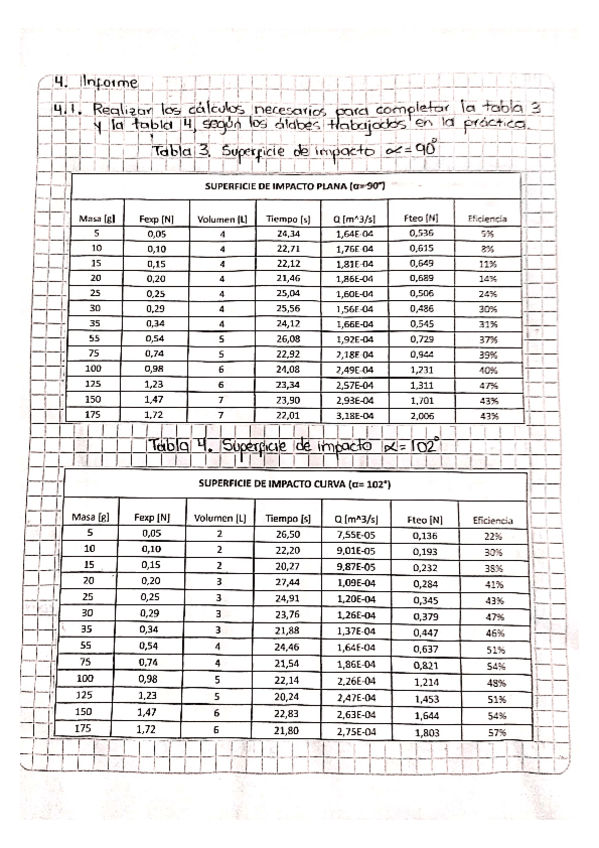 4. Informe
4.1. Realizar los cálculos necesarios para completar la tabla 3
y la tabla 4, según los álabes trabajados en la práctica.
Tabla 3. Superficie de impacto α=90°
SUPERFICIE DE IMPACTO PLANA (α=90°)
Masa [g] Fexp [N] Volumen [L] Tiempo [s] Q [m^3/s] Fteo [N] Eficiencia
5 0,05 4 24,34 1,64E-04 0,536 5%
10 0,10 4 22,71 1,76E-04 0,615 8%
15 0,15 4 22,12 1,81E-04 0,649 11%
20 0,20 4 21,46 1,86E-04 0,689 14%
25 0,25 4 25,04 1,60E-04 0,506 24%
30 0,29 4 25,56 1,56E-04 0,486 30%
35 0,34 4 24,12 1,66E-04 0,545 31%
55 0,54 5 26,08 1,92E-04 0,729 37%
75 0,74 5 22,92 2,18E-04 0,944 39%
100 0,98 6 24,08 2,49E-04 1,231 40%
125 1,23 6 23,34 2,57E-04 1,311 47%
150 1,47 7 23,90 2,93E-04 1,701 43%
175 1,72 7 22,01 3,18E-04 2,006 43%
Tabla 4. Superficie de impacto α=102°
SUPERFICIE DE IMPACTO CURVA (α= 102°)
Masa [g] Fexp [N] Volumen [L] Tiempo [s] Q [m^3/s] Fteo [N] Eficiencia
5 0,05 2 26,50 7,55E-05 0,136 22%
10 0,10 2 22,20 9,01E-05 0,193 30%
15 0,15 2 20,27 9,87E-05 0,232 38%
20 0,20 3 27,44 1,09E-04 0,284 41%
25 0,25 3 24,91 1,20E-04 0,345 43%
30 0,29 3 23,76 1,26E-04 0,379 47%
35 0,34 3 21,88 1,37E-04 0,447 46%
55 0,54 4 24,46 1,64E-04 0,637 51%
75 0,74 4 21,54 1,86E-04 0,821 54%
100 0,98 5 22,14 2,26E-04 1,214 48%
125 1,23 5 20,24 2,47E-04 1,453 51%
150 1,47 6 22,83 2,63E-04 1,644 54%
175 1,72 6 21,80 2,75E-04 1,803 57%